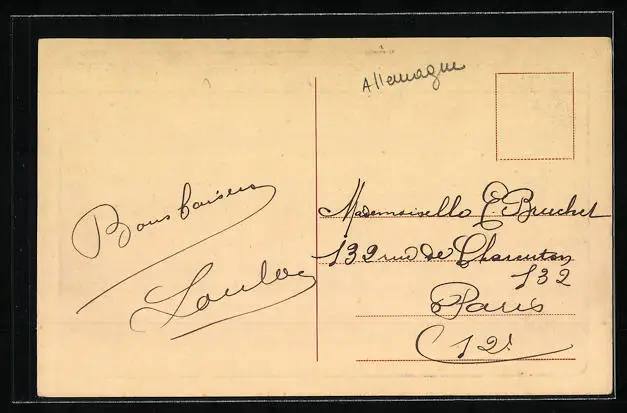 Allemagne
Bons baisers
Loulou
Mademoiselle E. Bruchet
132 rue de Charenton
132
Paris
(12e